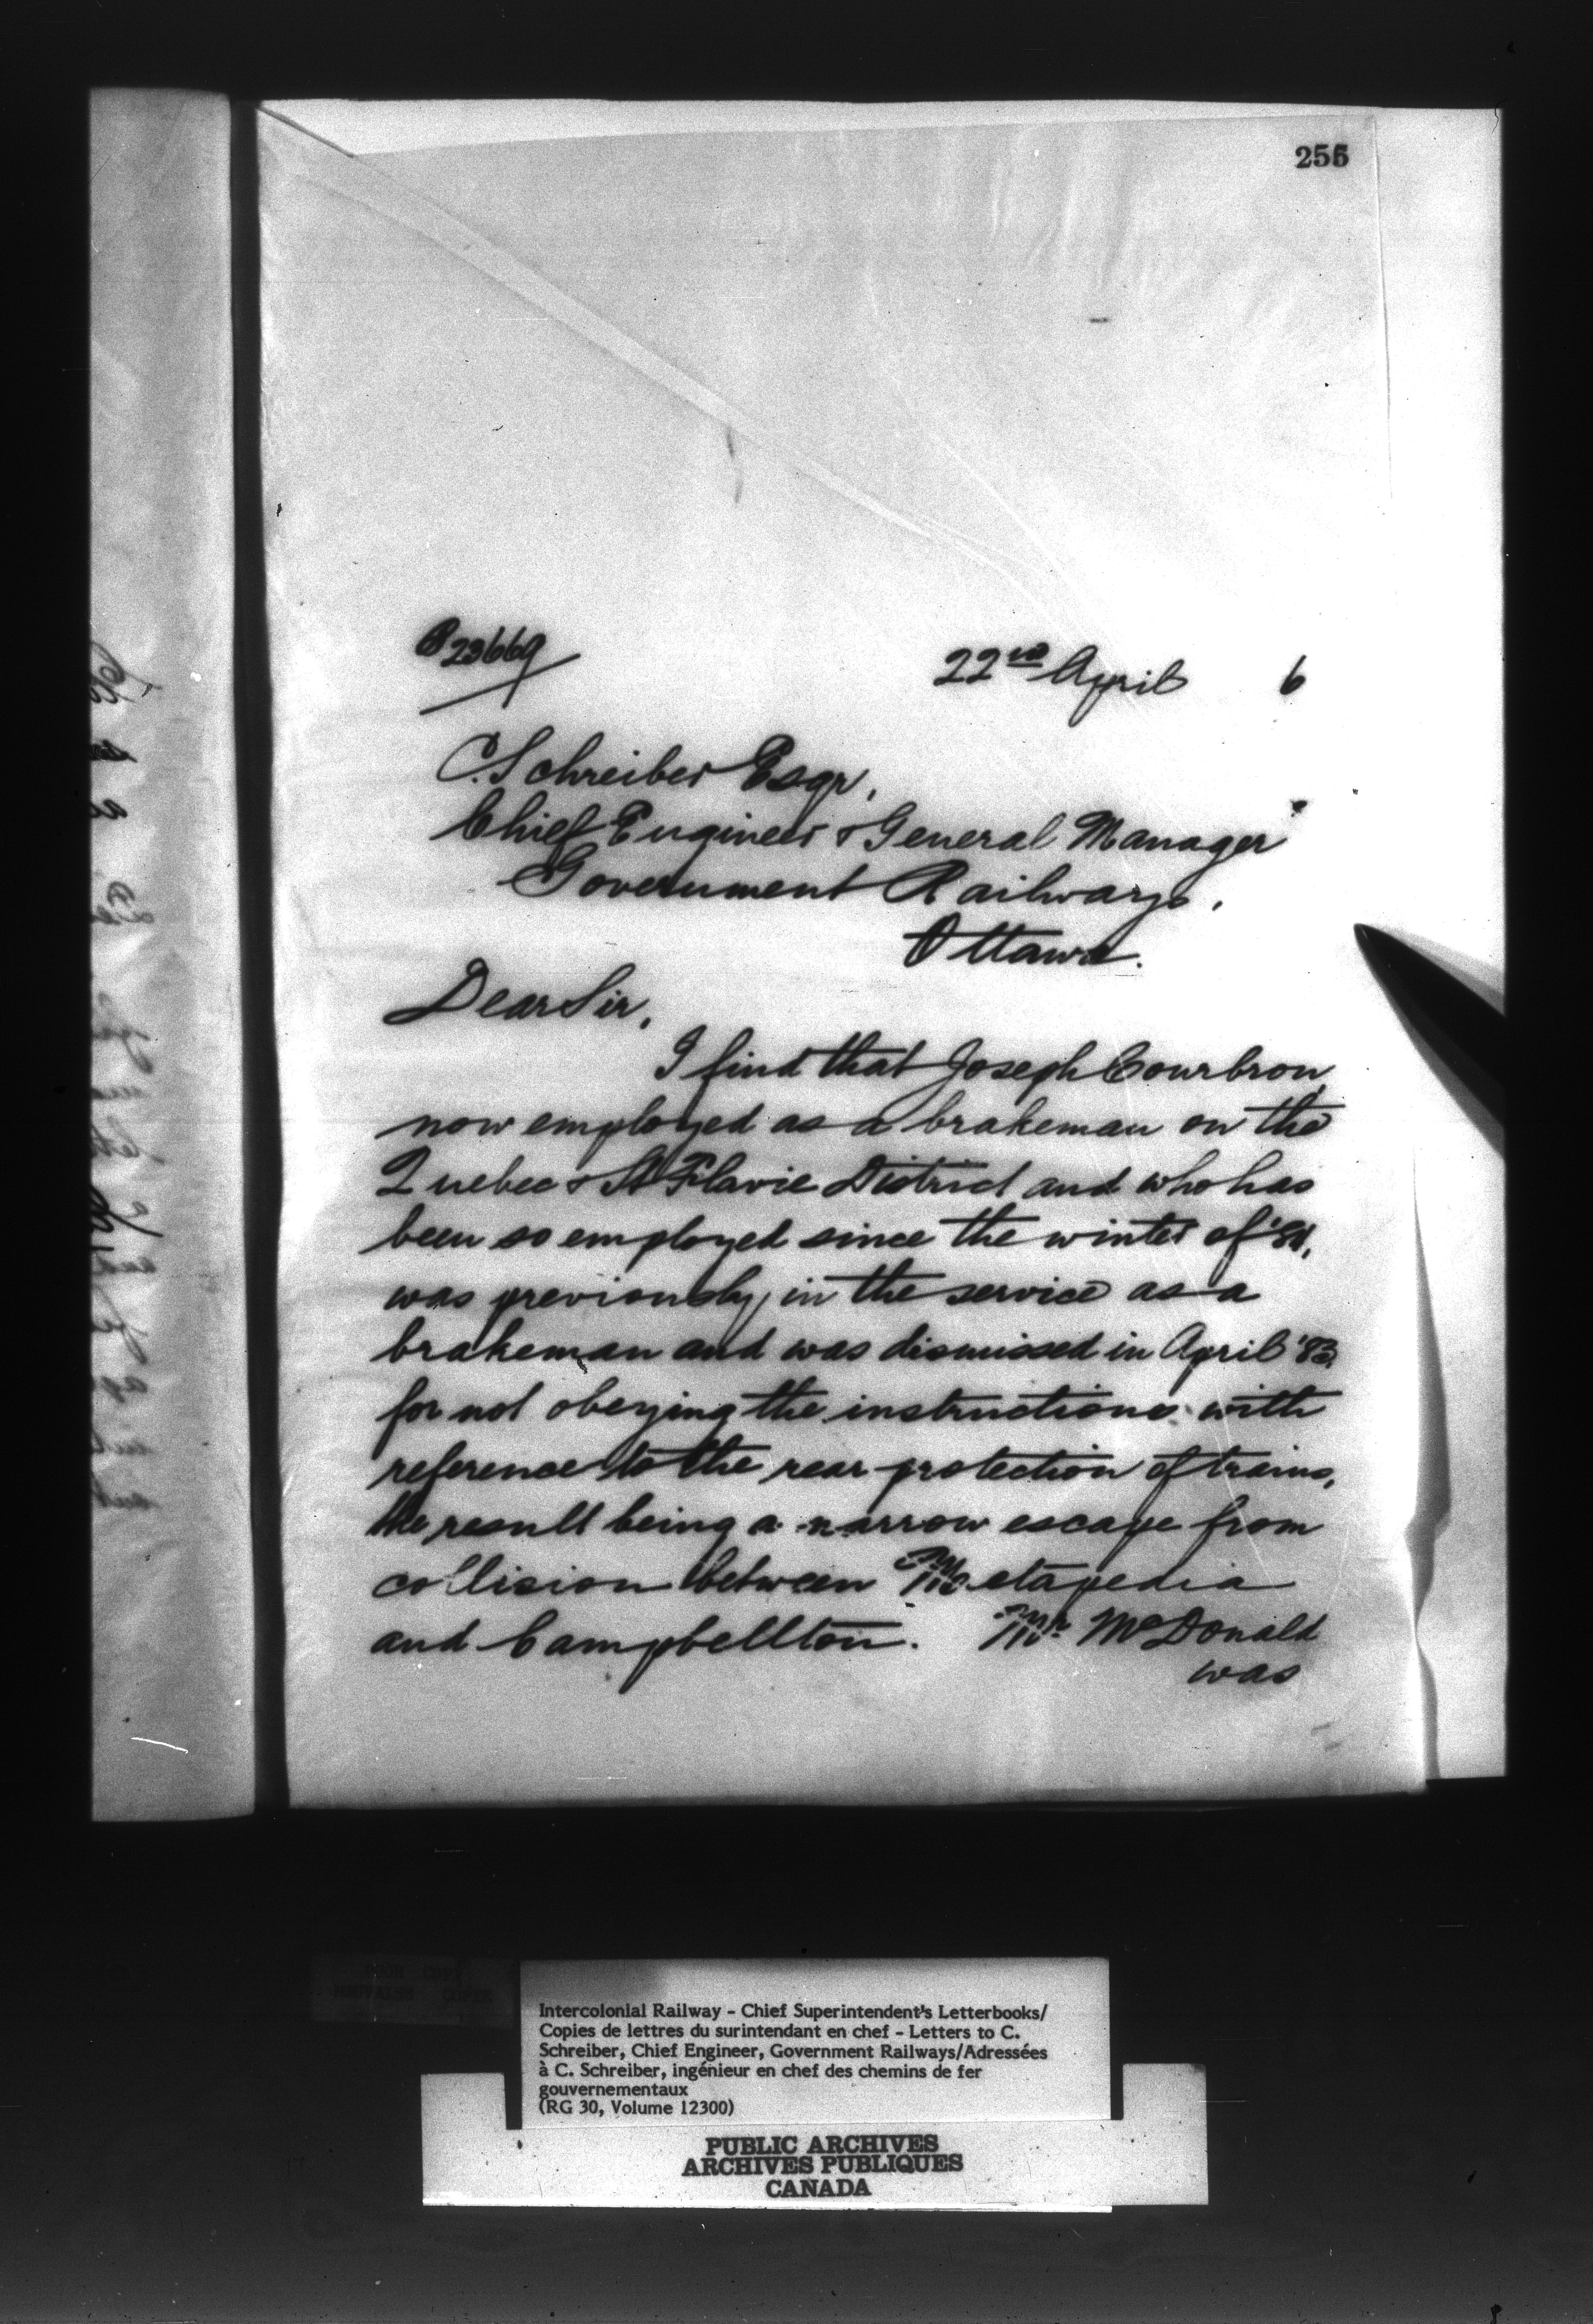 255
B 23669
22nd April 6
C. Schreiber Esqr,
Chief Engineer & General Manager
Government Railways,
Ottawa.
Dear Sir,
I find that Joseph Courbron,
now employed as a brakeman on the
Quebec & St Flavie District and who has
been so employed since the winter of
was previously in the service as a
brakeman and was dismissed in April '83
for not obeying the instructions with
reference to the rear protection of trains,
the result being a narrow escape from
collision between Metapedia
and Campbellton. Mr. McDonald
was
Intercolonial Railway - Chief Superintendent's Letterbooks/
Copies de lettres du surintendant en chef - Letters to C.
Schreiber, Chief Engineer, Government Railways/Adressées
à C. Schreiber, ingénieur en chef des chemins de fer
gouvernementaux
(RG 30, Volume 12300)
PUBLIC ARCHIVES
ARCHIVES PUBLIQUES
CANADA